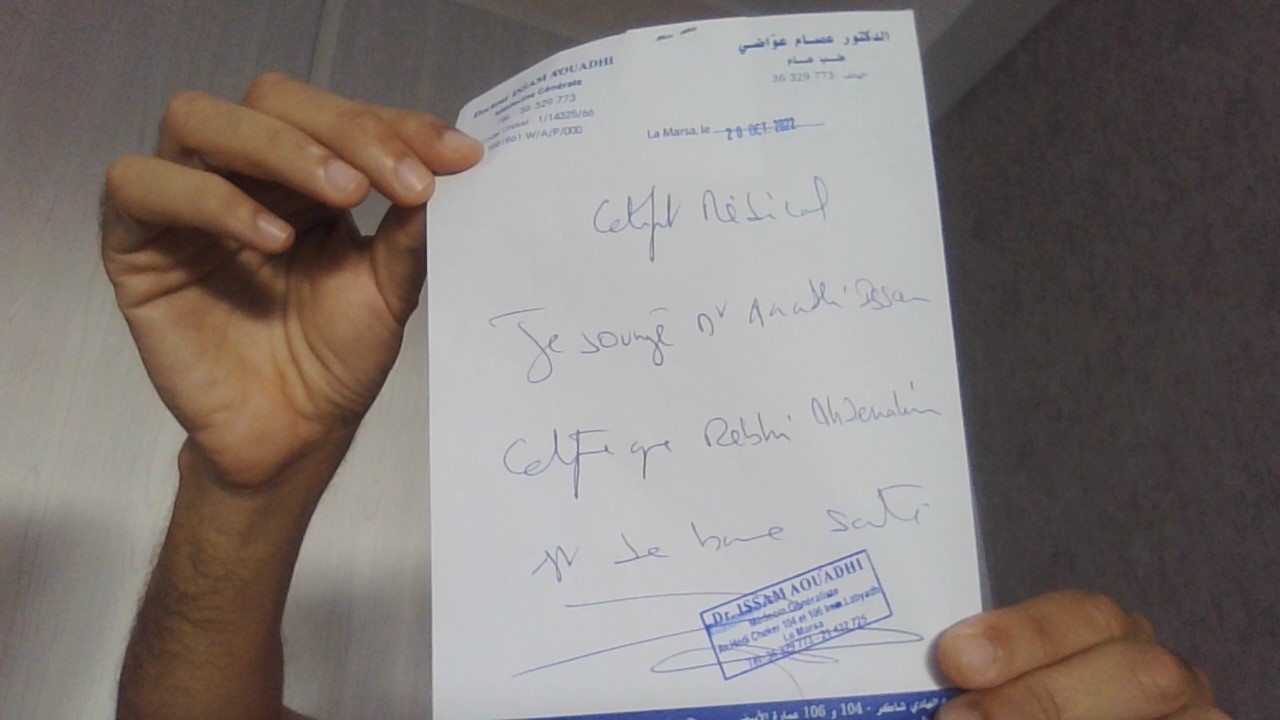 Docteur ISSAM AOUADHI
Médecine Générale
Tél : 36 329 773
1/14325/66
W/A/P/000
الدكتور عصام عوّاضي
طب عام
الهاتف: 36 329 773
La Marsa, le 20 OCT 2022
Certificat Médical
Je soussigné Dr Aouadhi Issam
Certifie que Rebhi
est de bonne santé
Dr. ISSAM AOUADHI
Médecin Généraliste
Av. Hédi Chaker 104 et 106 Imm.
La Marsa
Tél : 36 329 773 -
الهادي شاكر - 104 و 106 عمارة